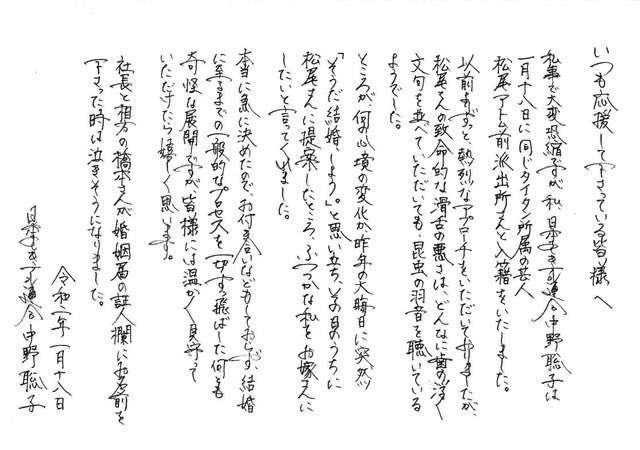 いつも応援して下さっている皆様へ
私事で大変恐縮ですが、私、日本エレキテル連合中野聡子は
一月十八日に同じタイタン所属の芸人
松尾アトム前派出所さんと入籍をいたしました。
以前よりずっと、熱烈なアプローチをいただいておりましたが、
松尾さんの致命的な滑舌の悪さは、どんなに歯の浮く
文句を並べていただいても、昆虫の羽音を聴いている
ようでした。
ところが、何の心境の変化か昨年の大晦日に突然
「そうだ結婚しよう」。と思い立ち、その日のうちに
松尾さんに提案したところ、ふつつかな私をお嫁さんに
したいと言ってくれました。
本当に急に決めたので、お付き合いなどもしておらず、結婚
に至るまでの一般的なプロセスを一切すっ飛ばした何とも
奇怪な展開ですが、皆様には温かく見守って
いただけたら嬉しく思います。
社長と相方の橋本さんが婚姻届の証人欄にお名前を
下さった時は泣きそうになりました。
令和二年一月十八日
日本エレキテル連合中野聡子